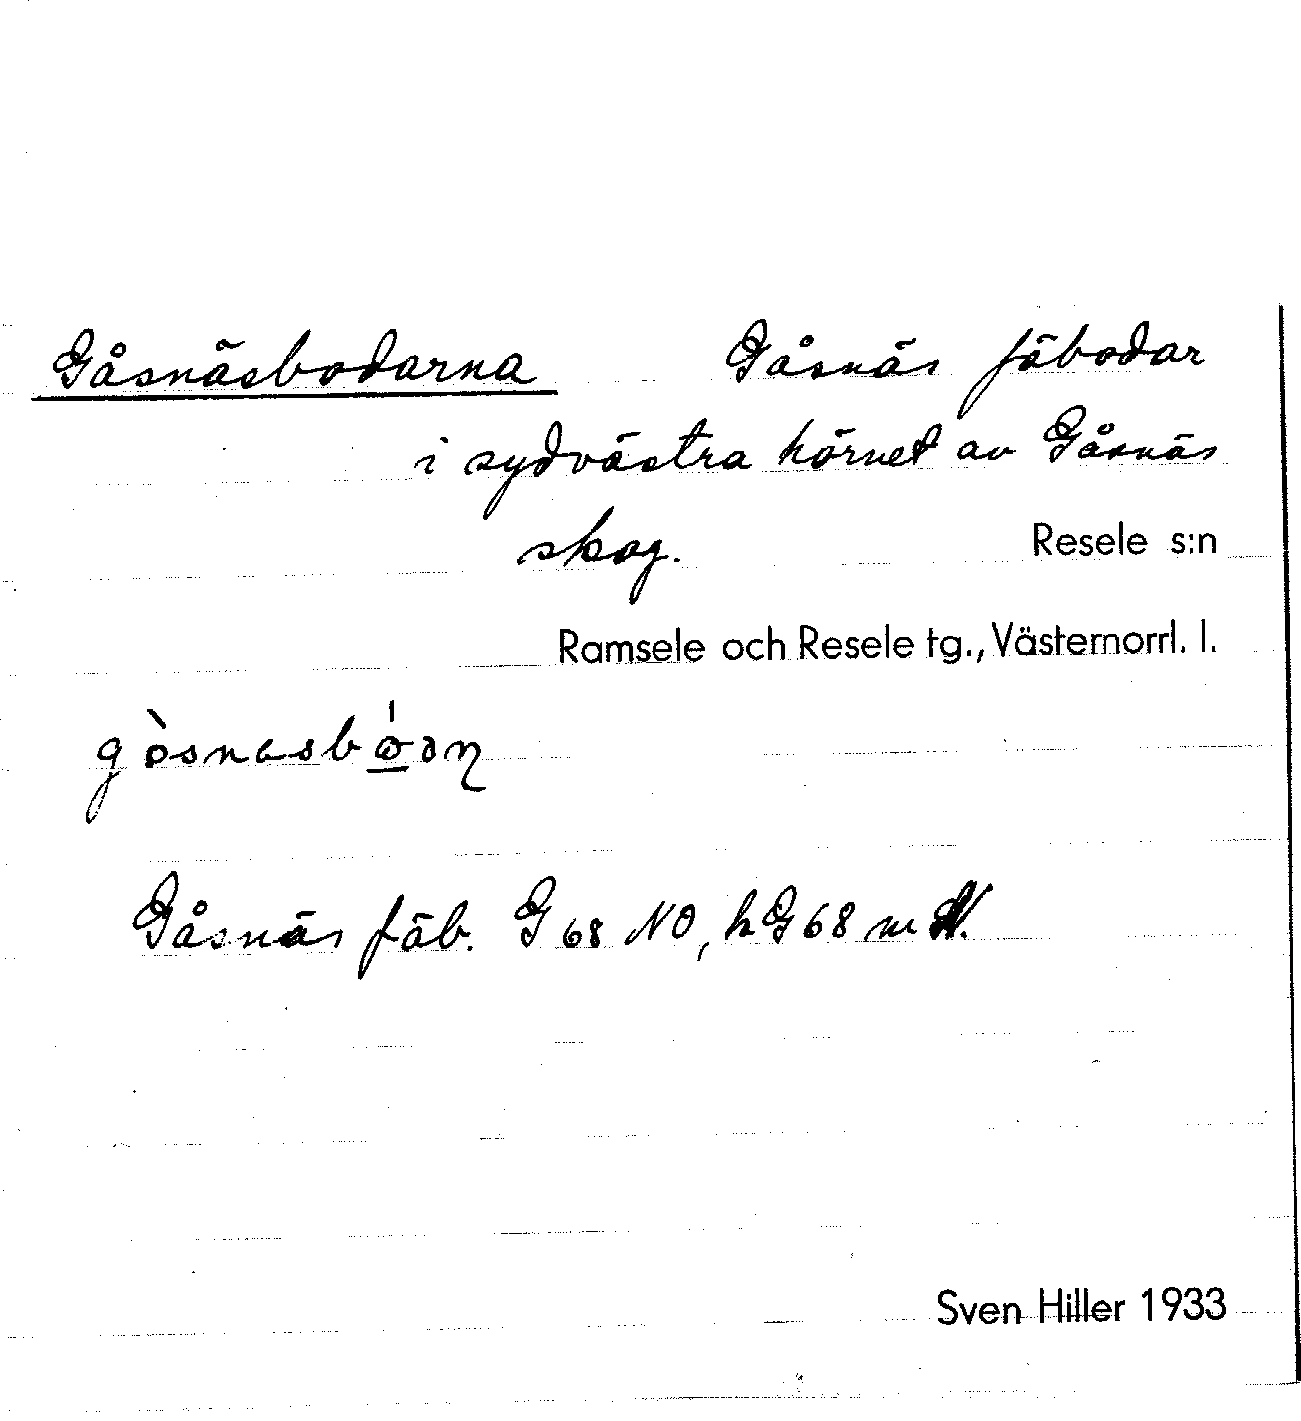 Gåsnäsbodarna Gåsnäs fäbodar
i sydvästra hörnet av Gåsnäs
skog. Resele s:n
Ramsele och Resele tg., Västernorrl. l.
Gåsnäs fäb. G 68 NO, h G 68 m
Sven Hiller 1933